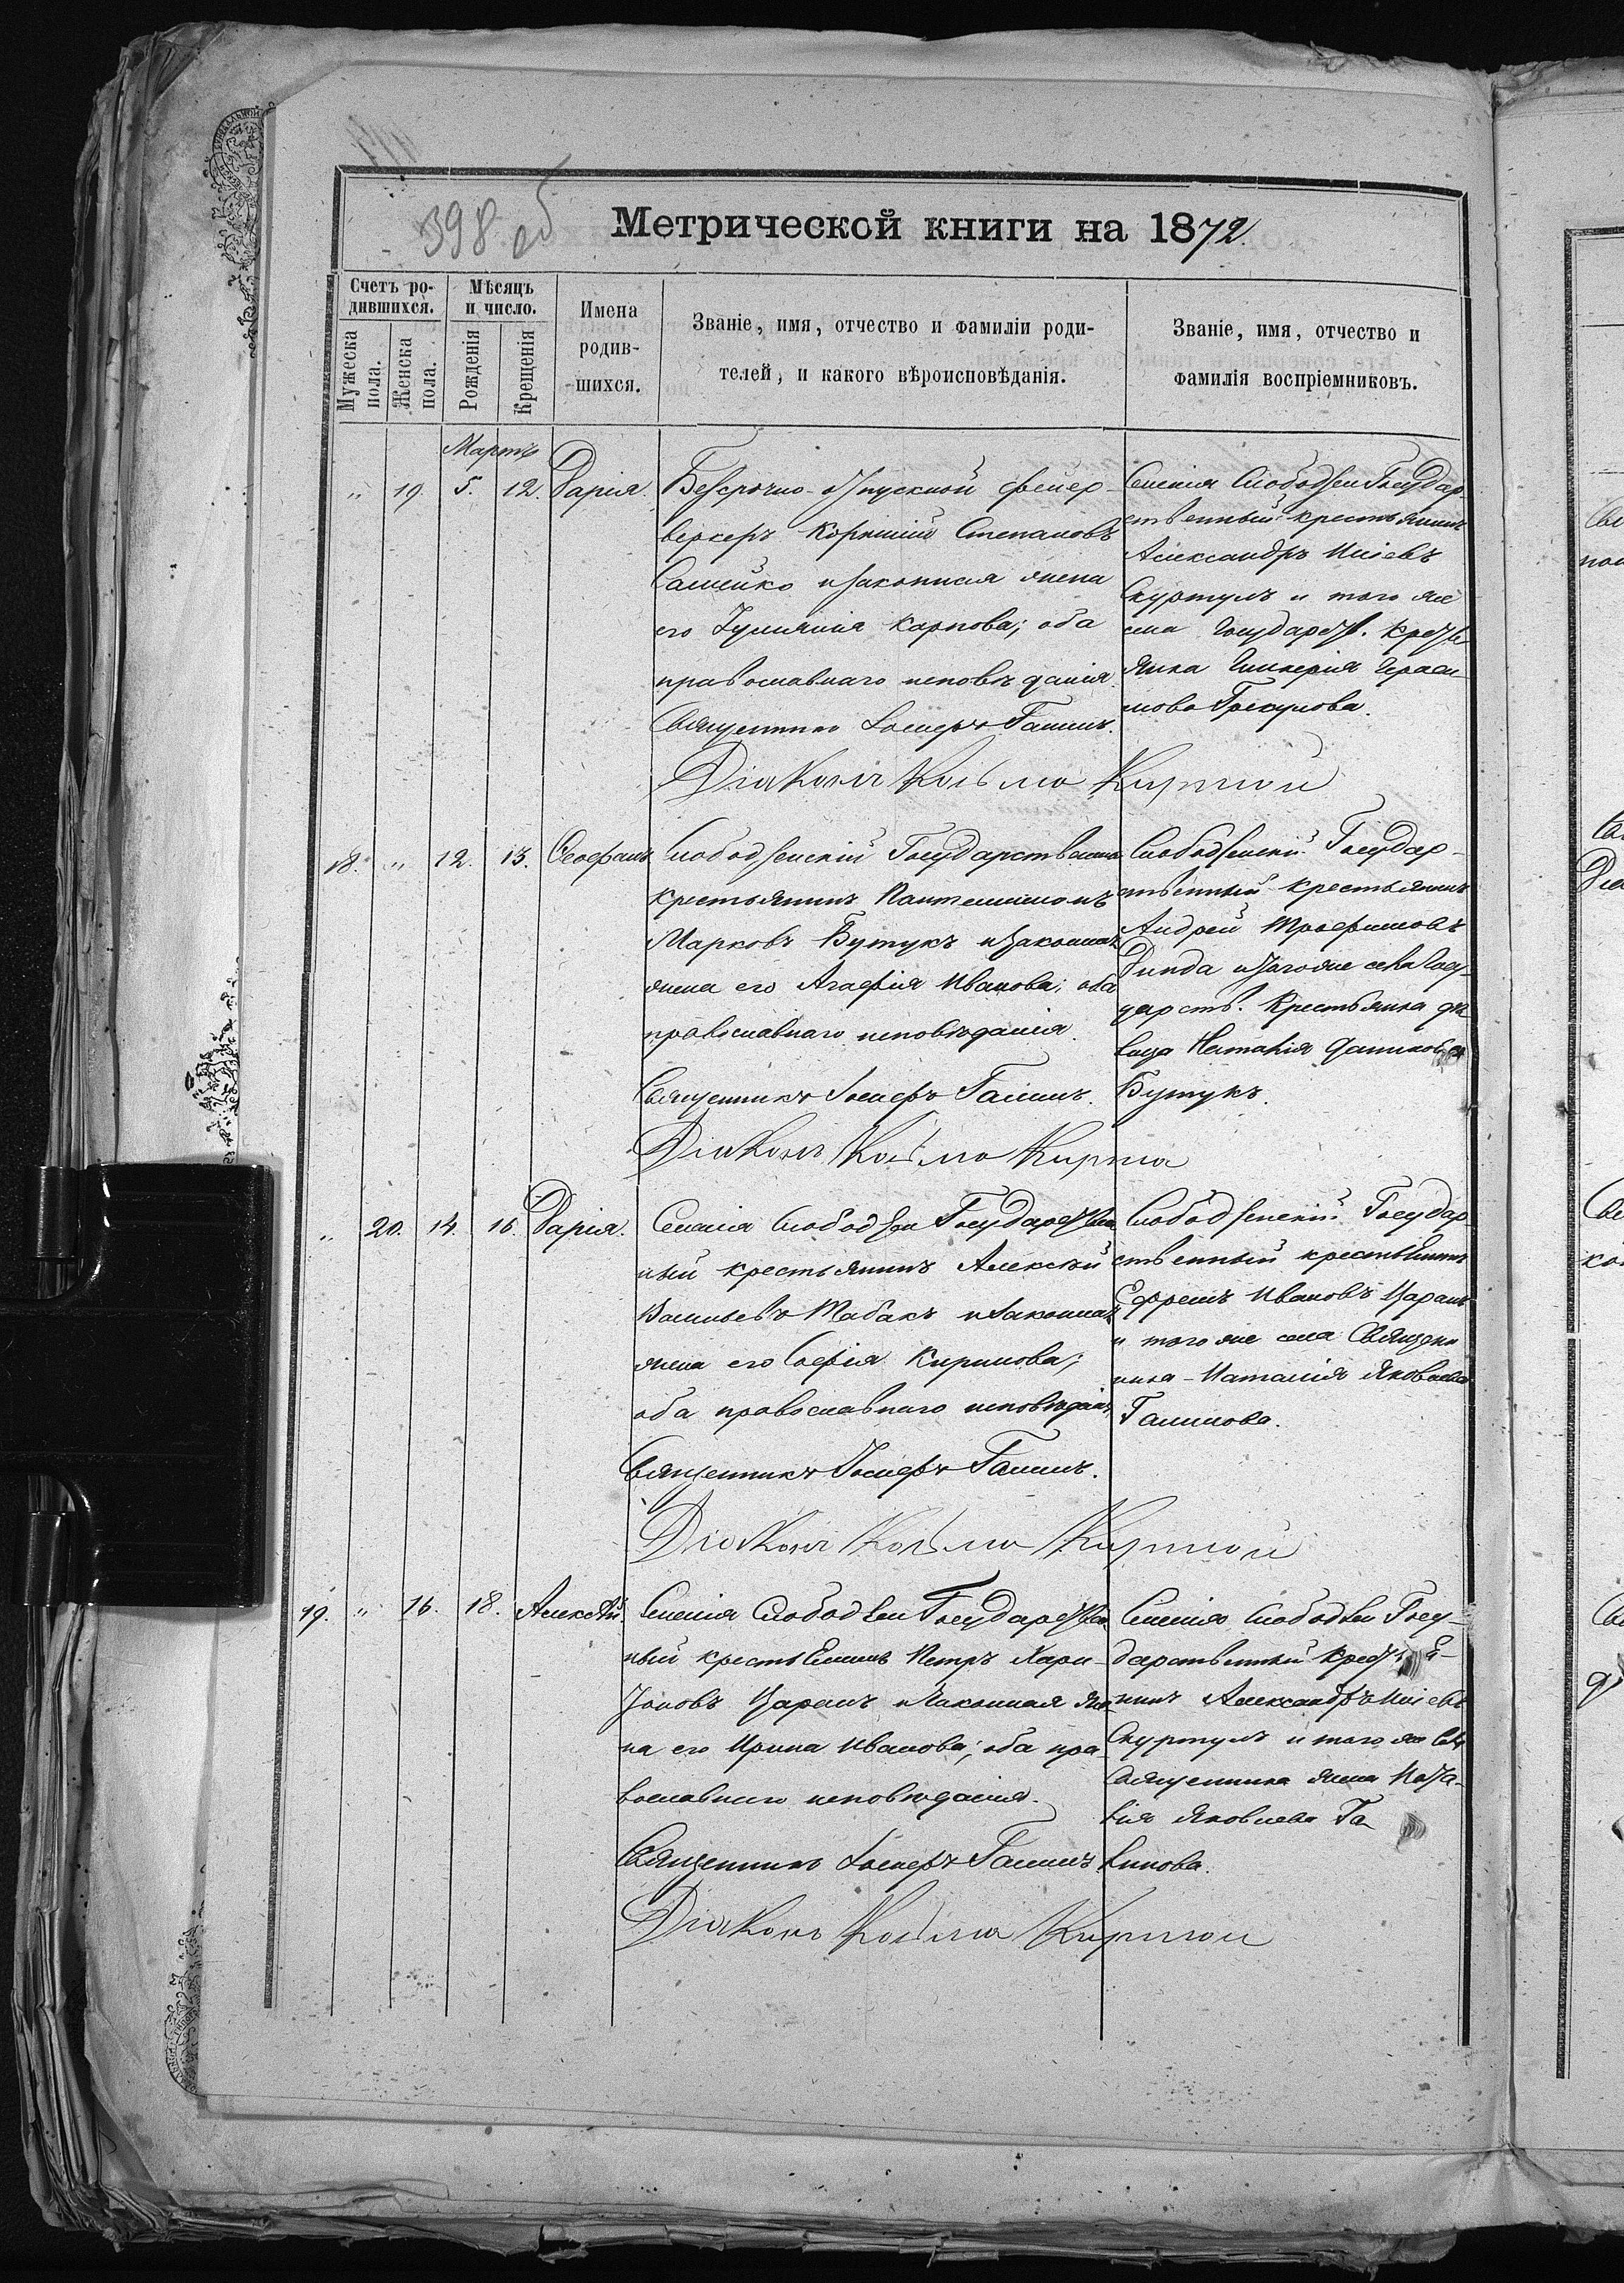 398 об
Метрической книги на 1872.
Счетъ ро-
дившихся.
Мѣсяцъ
и число.
Имена
родив-
шихся.
Званіе, имя, отчество и фамиліи роди-
телей, и какого вѣроисповѣданія.
Званіе, имя, отчество и
фамилія воспріемниковъ.
Мужеска
пола.
Женска
пола.
Рожденія
Крещенія
Мартъ
„ 19. 5. 12. Дарія.
Безсрочно-отпускной фейер-
веркеръ Корнилій Степановъ
и законная жена
его Іуліанія Карпова; оба
православнаго исповѣданія.
Священникъ Іосифъ Галинъ.
Діаконъ Козьма
Селенія Слободзеи Государ-
ственный крестьянинъ
Александръ Иліевъ
Скуртулъ и того же
села Государст. крестъ
янка Гликерія Гераси
мова Грекулова.
18. „ 12. 13. Ѳеофанъ
Слободзейскій Государственн
крестьянинъ Пантелеимонъ
Марковъ Бутукъ и законная
жена его Агафія Иванова; оба
православнаго исповѣданія.
Священникъ Іосифъ Галинъ.
Діаконъ Козьма
Слободзейскій Государ-
ственный крестьянинъ
Андрей Трофимовъ
Динда и того же села Госу-
дарств. Крестьянка дѣ
вица Наталія Данилова
Бутукъ.
„ 20. 14. 16. Дарія.
Селенія Слободзеи Государствен
ный крестьянинъ Алексѣй
Васильевъ Табакъ и законная
жена его Софія Кирилова;
оба православнаго исповѣданія
Священникъ Іосифъ Галинъ.
Діаконъ Козьма
Слободзейскій Государ
ственный крестьянинъ
Ефремъ Ивановъ Царанъ
и того же села Священ
ника - Наталія Яковлева
Галинова.
19. „ 16. 18. Алексѣй.
Селенія Слободзеи Государствен
ный крестьянинъ Петръ Хари-
тоновъ Царанъ и законная же
на его Ирина Иванова; оба пра
вославнаго исповѣданія.
Священникъ Іосифъ Галинъ
Діаконъ Козьма
Селенія Слободзеи Госу-
дарственный крестья-
нинъ Александръ Иліевъ
Скуртулъ и того же села
Священника жена Ната-
лія Яковлева Га
линова.